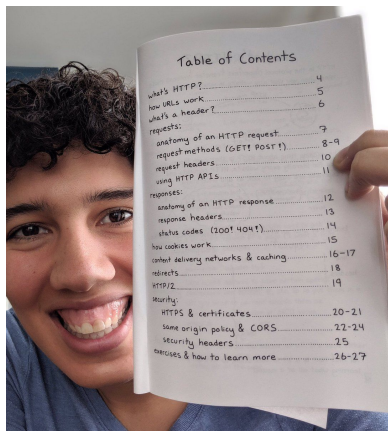 Table of Contents
what's HTTP? 4
how URLs work 5
what's a header? 6
requests:
anatomy of an HTTP request 7
request methods (GET! POST!) 8-9
request headers 10
using HTTP APIs 11
responses:
anatomy of an HTTP response 12
response headers 13
status codes (200! 404!) 14
how cookies work 15
content delivery networks & caching 16-17
redirects 18
HTTP/2 19
security:
HTTPS & certificates 20-21
same origin policy & CORS 22-24
security headers 25
exercises & how to learn more 26-27